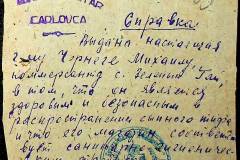 CARLOVCA
Справка
Выдана настоящая
гл-ну Чернеге Михаилу,
коммерсанту с. Зелёный Гай,
в том, что он является
здоровым и безопасным в
распространении сыпного тифа
и что его магазин соответст-
вует санитарно-гигиеничес-